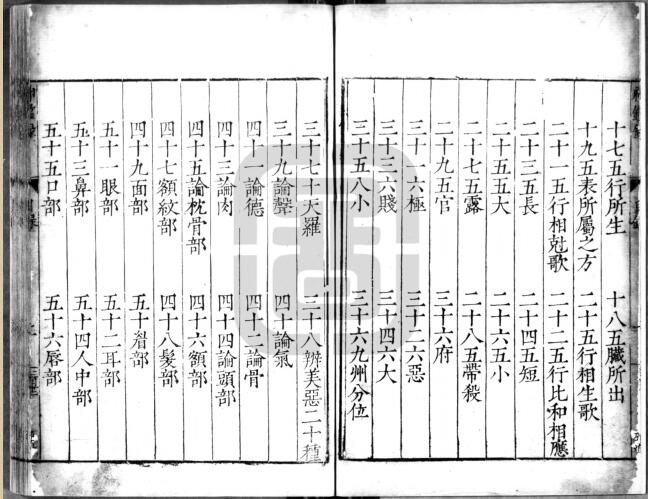 十七五行所生 十八五臟所出
十九五表所屬之方 二十五行相生歌
二十一五行相尅歌 二十二五行比和相應
二十三五長 二十四五短
二十五五大 二十六五小
二十七五露 二十八五帶殺
二十九五官 三十六府
三十一六極 三十二六惡
三十三六賤 三十四六大
三十五八小 三十六九州分位
三十七十天羅 三十八辨美惡二十種
三十九論聲 四十論氣
四十一論德 四十二論骨
四十三論肉 四十四論頭部
四十五論枕骨部 四十六額部
四十七額紋部 四十八髮部
四十九面部 五十睂部
五十一眼部 五十二耳部
五十三鼻部 五十四人中部
五十五口部 五十六脣部